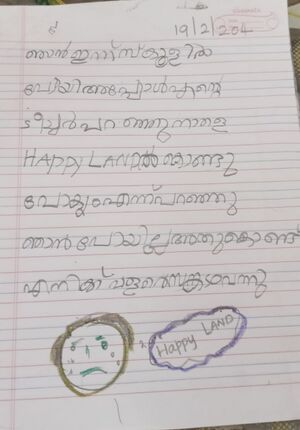 19/2/204
ഞാൻ ഇന്ന് സ്കൂളിൽ
പോയി അപ്പോൾ എന്റെ
ടീച്ചർ പറഞ്ഞു നാളെ
HAPPY LANDൽ കൊണ്ടു
പോകും എന്ന് പറഞ്ഞു
ഞാൻ പോയില്ല അതുകൊണ്ട്
എനിക്ക് വളരെ സങ്കടം വന്നു
Happy LAND